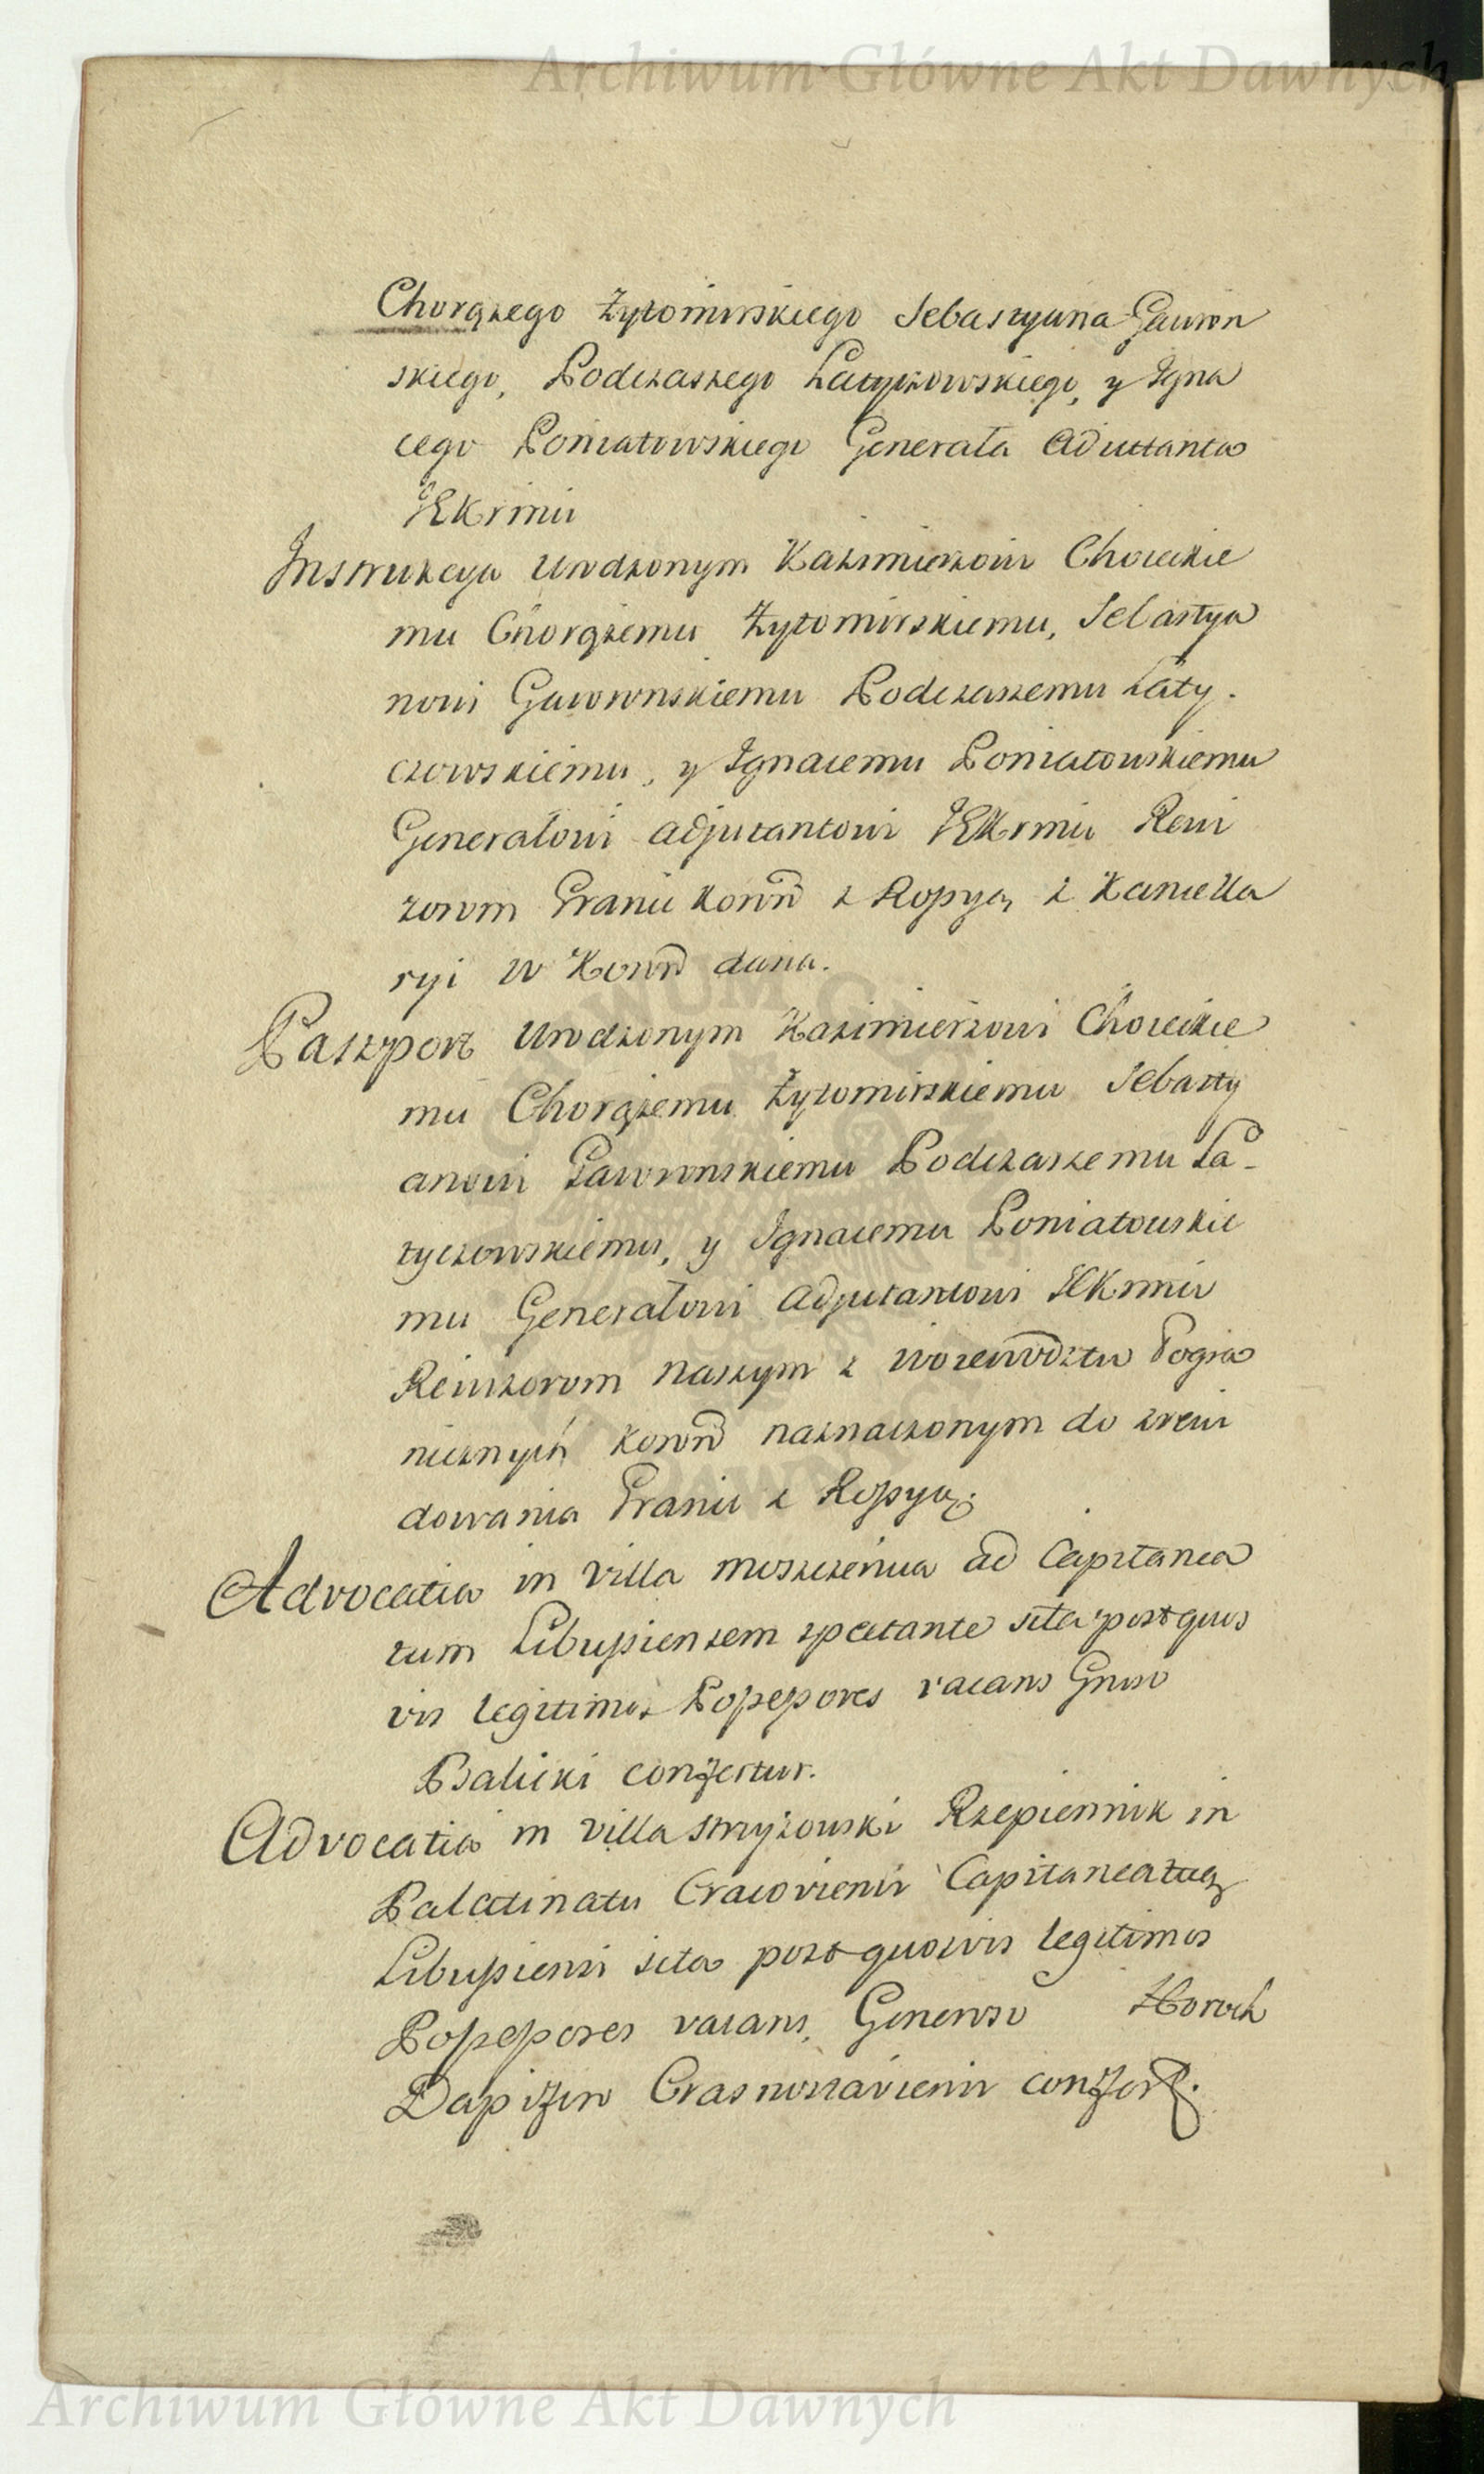 Archiwum Główne Akt Dawnych
Chorążego Żytomirskiego Sebastyana Gawron
skiego, Podczaszego Latyczowskiego, y Igna
cego Poniatowskiego Generała Adiuttanta
JKrmci
Instrukcya Urodzonym Kazimierzowi Chołeckie
mu Chorążemu Żytomirskiemu, Sebastya
nowi Gawronskiemu Podczaszemu Laty-
czowskiemu, y Ignacemu Poniatowskiemu
Generałowi Adjutantowi JKrmci Rewi
zorom Granic Koronn z Rossyą z Kancella
ryi W Koronn dana.
Paszport Urodzonym Kazimierzowi Chołeckie
mu Chorążemu Żytomirskiemu Sebasty
anowi Gawronskiemu Podczaszemu La-
tyczowskiemu, y Ignacemu Poniatowskie
mu Generałowi Adjutantowi JKrmci
Rewizorom Naszym z Woiewodztw Pogra
nicznych Koronn naznaczonym do zrewi
dowania Granic z Rossyą.
Advocatia in Villa Moszczenica ad Capitanea
tum Libusiensem spectante sita post quos
vis legitimos Possessores vacans Gnoso
Balicki confertur.
Advocatia in Villa Strzyzowski Rzepiennik in
Palatinatu Cracoviensi Capitaneatuq
Libusiensi sita post quosvis legitimos
Possessores vacans, Generoso Horoch
Dapifero Crasnostaviensi confert.
Archiwum Główne Akt Dawnych